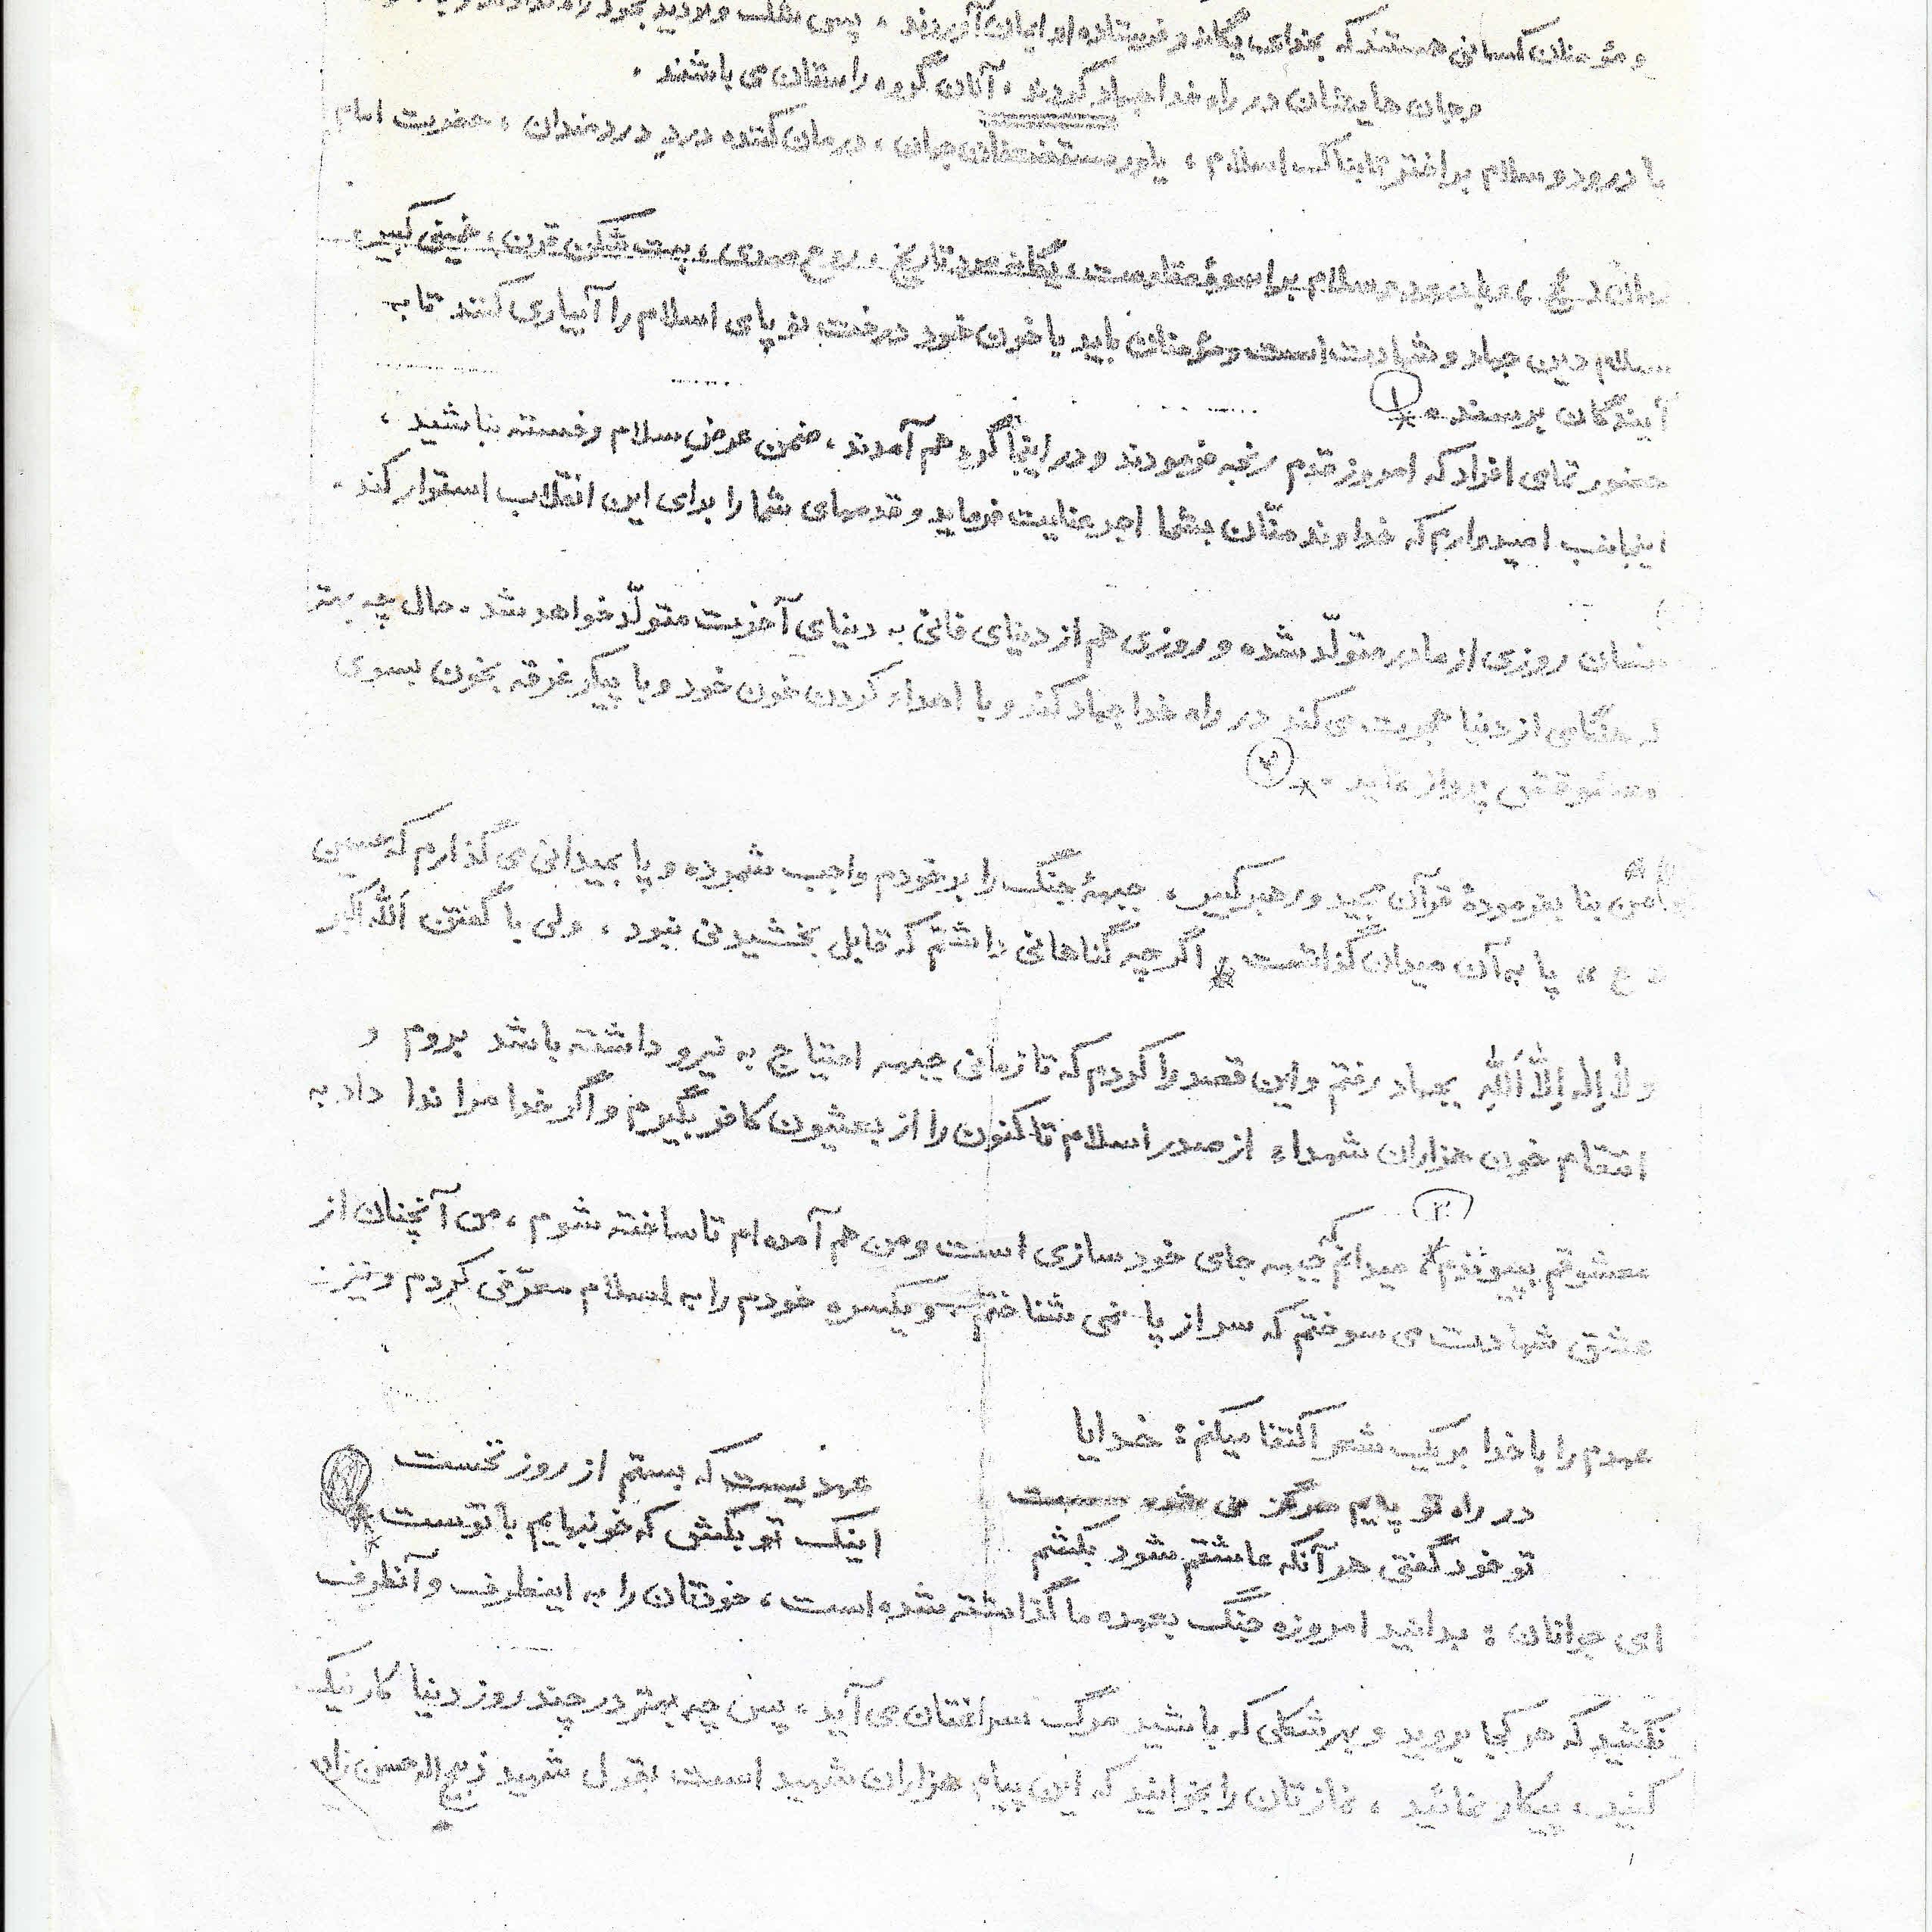 و مؤمنان کسانی هستند که بخدای یگانه و فرستاده او ایمان آوردند ، پس شک و تردید بخود راه ندادند و با
و جان هایشان در راه خدا جهاد کردند ، آنان گروه راستان می باشند .
با درود و سلام بر اختر تابناک اسلام ، یاور مستضعفان جهان ، درمان کننده درد دردمندان ، حضرت امام
و سلام بر اسوهٔ مقاومت ، یگانه مرد تاریخ ، روح خدا ، بت شکن قرن ، خمینی کبیر ،
اسلام دین جهاد و شهادت است و مؤمنان باید با خون خود درخت نو پای اسلام را آبیاری کنند تا به
آیندگان برسند . * ۱
حضور تمامی افراد که امروز قدم رنجه فرمودند و در اینجا گرد هم آمدند ، ضمن عرض سلام و خسته نباشید ،
اینجانب امیدوارم که خداوند منّان بشما اجر عنایت فرماید و قدمهای شما را برای این انقلاب استوار کند .
انسان روزی از مادر متولّد شده و روزی هم از دنیای فانی به دنیای آخرت متولّد خواهد شد . حال چه بهتر
که هنگامی از دنیا هجرت می کند در راه خدا جهاد کند و با اهداء کردن خون خود و با پیکر غرقه بخون بسوی
معشوقش پرواز نماید . * ۲
من بنا بفرمودهٔ قرآن مجید و رهبر کبیر ، جبههٔ جنگ را بر خودم واجب شمرده و پا بمیدانی می گذارم که حسین
« ع » پا به آن میدان گذاشت * اگر چه گناهانی داشتم که قابل بخشیدنی نبود ، ولی با گفتن اَللهُ اکبر
و لا اِلهَ اِلَّا اَللهُ بجهاد رفتم و این قصد را کردم که تا زمانی جبهه احتیاج به نیرو داشته باشد بروم و
انتقام خون هزاران شهداء از صدر اسلام تا کنون را از بعثیون کافر بگیرم و اگر خدا مرا ندا داد به
۳
معشوقم بپیوندم * میدانم که جبهه جای خود سازی است و من هم آمده ام تا ساخته شوم ، من آنچنان از
عشق شهادت می سوختم که سر از پا نمی شناختم ، و یکسره خودم را به اسلام معرّفی کردم و نیز
عهدم را با خدا بر یک شعر اکتفا میکنم : خدایا
عهدیست که بستم از روز نخست
در راه تو پایم هرگز می نخواهد سست
تو خود گفتی هر آنکه عاشقم شود بکشم
اینک تو بکش که خونبهایم با توست *
ای جوانان : بدانید امروزه جنگ بعهده ما گذاشته شده است ، خودتان را به اینطرف و آنطرف
نکشید که هر کجا بروید و بهر شکلی که باشید مرگ سراغتان می آید ، پس چه بهتر در چند روز دنیا کار نیک
کنید ، پیکار نمائید ، نمازتان را بخوانید که این پیام هزاران شهید است بقول شهید ذبیح اله حسن زاده